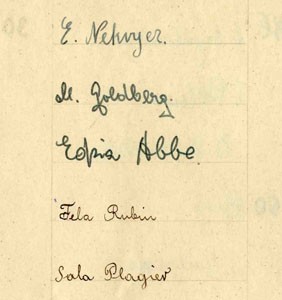 E. Nekvyer.
M. Goldberg.
Edzia Abbe.
Fela Rubin
Sala Plagier